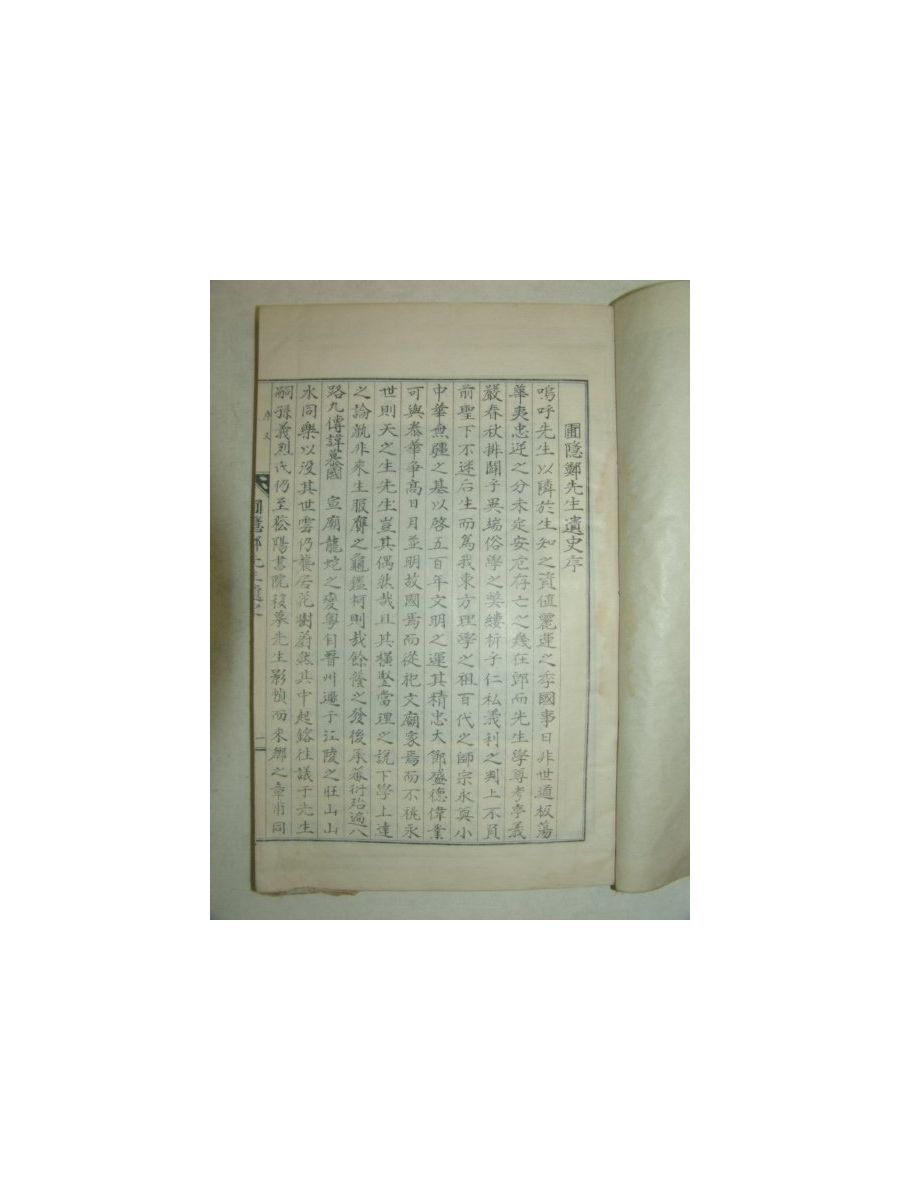 圃隱鄭先生遺史序
嗚呼先生以隣於生知之資值麗運之季國事日非世道板蕩
華夷忠逆之分未定安危存亡之幾在卽而先生學尊考亭義
嚴春秋排闢乎異端俗學之獘縷析乎仁私義利之判上不負
前聖下不迷后生而爲我東方理學之祖百代之師宗永奠小
中華無疆之基以啓五百年文明之運其精忠大節盛德偉業
可與泰華争高日月並明故國焉而從祀文廟家焉而不祧永
世則天之生先生豈其偶然哉且其橫竪當理之說下學上達
之論孰非來生服膺之龜鑑柯則哉餘蔭之發後承蕃衍殆遍八
路九傳諱 宣廟龍蛇之變粤自晋州遯于江陵之旺山山
水同樂以没其世雲仍簇居花樹蔚然其中起鎔往議于先生
嗣孫義烈氏仍至崧陽書院移摹先生影幀而來鄉之章甫同
序文
圃隱鄭先生遺史
一